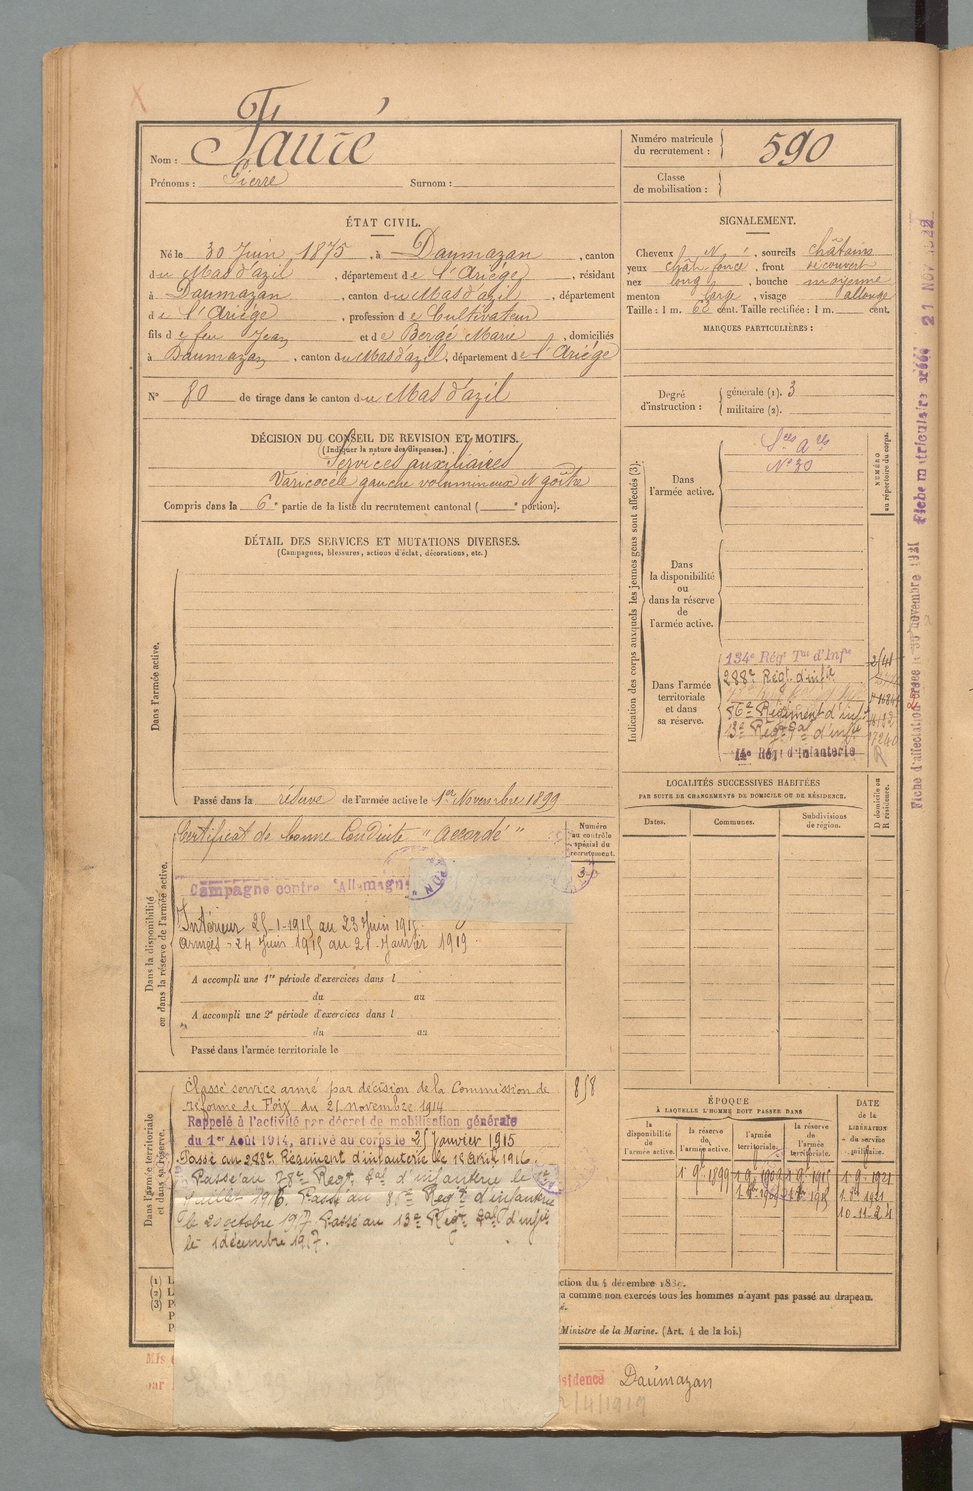 Nom : Fauré
Prénoms : Pierre Surnom :
Numéro matricule du recrutement : 590
Classe de mobilisation :
ÉTAT CIVIL.
Né le 30 Juin 1875, à Daumazan, canton
du Mas d'azil, département de l'Ariége, résidant
à Daumazan, canton du Mas d'azil, département
de l'Ariége, profession de Cultivateur
fils de feu Jean et de Bergé Marie, domiciliés
à Daumazan, canton du Mas d'azil, département de l'Ariége
N° 80 de tirage dans le canton du Mas d'azil
SIGNALEMENT.
Cheveux N, sourcils châtains
yeux chât. foncé, front découvert
nez long, bouche moyenne
menton large, visage allongé
Taille : 1 m. 62 cent. Taille rectifiée : 1 m. cent.
MARQUES PARTICULIÈRES :
Degré d'instruction : générale (1). 3
militaire (2).
DÉCISION DU CONSEIL DE REVISION ET MOTIFS.
(Indiquer la nature des dispenses.)
Services auxiliaires
Varicocèle gauche volumineux goître
Compris dans la 6e partie de la liste du recrutement cantonal ( e portion).
DÉTAIL DES SERVICES ET MUTATIONS DIVERSES.
(Campagnes, blessures, actions d'éclat, décorations, etc.)
Dans l'armée active.
Passé dans la réserve de l'armée active le 1er Novembre 1899
Indication des corps auxquels les jeunes gens sont affectés (3).
NUMÉRO au répertoire du corps.
Dans l'armée active.
Sces Ares
N° 30
Dans la disponibilité ou dans la réserve de l'armée active.
Dans l'armée territoriale et dans sa réserve.
134e Régt Tal d'Infie
288e Régt d'infie
86e Régiment d'infie
13e Régt d'infie
14e Régt d'Infanterie
Dans la disponibilité ou dans la réserve de l'armée active.
Certificat de bonne Conduite "Accordé"
Numéro au contrôle spécial du recrutement.
Campagne contre l'Allemagne
Intérieur 25-1-1915 au 23 Juin 1915
Armées - 24 Juin 1915 au 21 Janvier 1919
A accompli une 1re période d'exercices dans l
du au
A accompli une 2e période d'exercices dans l
du au
Passé dans l'armée territoriale le
LOCALITÉS SUCCESSIVES HABITÉES
PAR SUITE DE CHANGEMENTS DE DOMICILE OU DE RÉSIDENCE.
Dates. Communes. Subdivisions de région. D domicile ou R résidence.
Dans l'armée territoriale et dans sa réserve.
Classé service armé par décision de la Commission de
réforme de Foix du 21 novembre 1914
858
Rappelé à l'activité par décret de mobilisation générale
du 1er Août 1914, arrivé au corps le 25 Janvier 1915
Passé au 288e Régiment d'infanterie le 18 Avril 1916
Passé au 78e Régt. d'infanterie le 1er
Juillet 1916. Passé au 86e Régt d'infanterie
le 20 octobre 1917. Passé au 13e Régt d'infie
le 1 décembre 1917.
ÉPOQUE
À LAQUELLE L'HOMME DOIT PASSER DANS
la disponibilité de l'armée active. la réserve de l'armée active. l'armée territoriale. la réserve de l'armée territoriale.
DATE de la LIBÉRATION du service militaire.
1 9 1899 1 9 1909 1 9 1915 1 9 1921
10-11-24
(1)
(2)
(3)
ction du 4 décembre
a comme non exercés tous les hommes n'ayant pas passé au drapeau.
Ministre de la Marine. (Art. 4 de la loi.)
Mis
par
sidence Daumazan
/4/1919
Fiche d'affectation
novembre 1921
Fiche matriculaire créée 21 NOV 1922